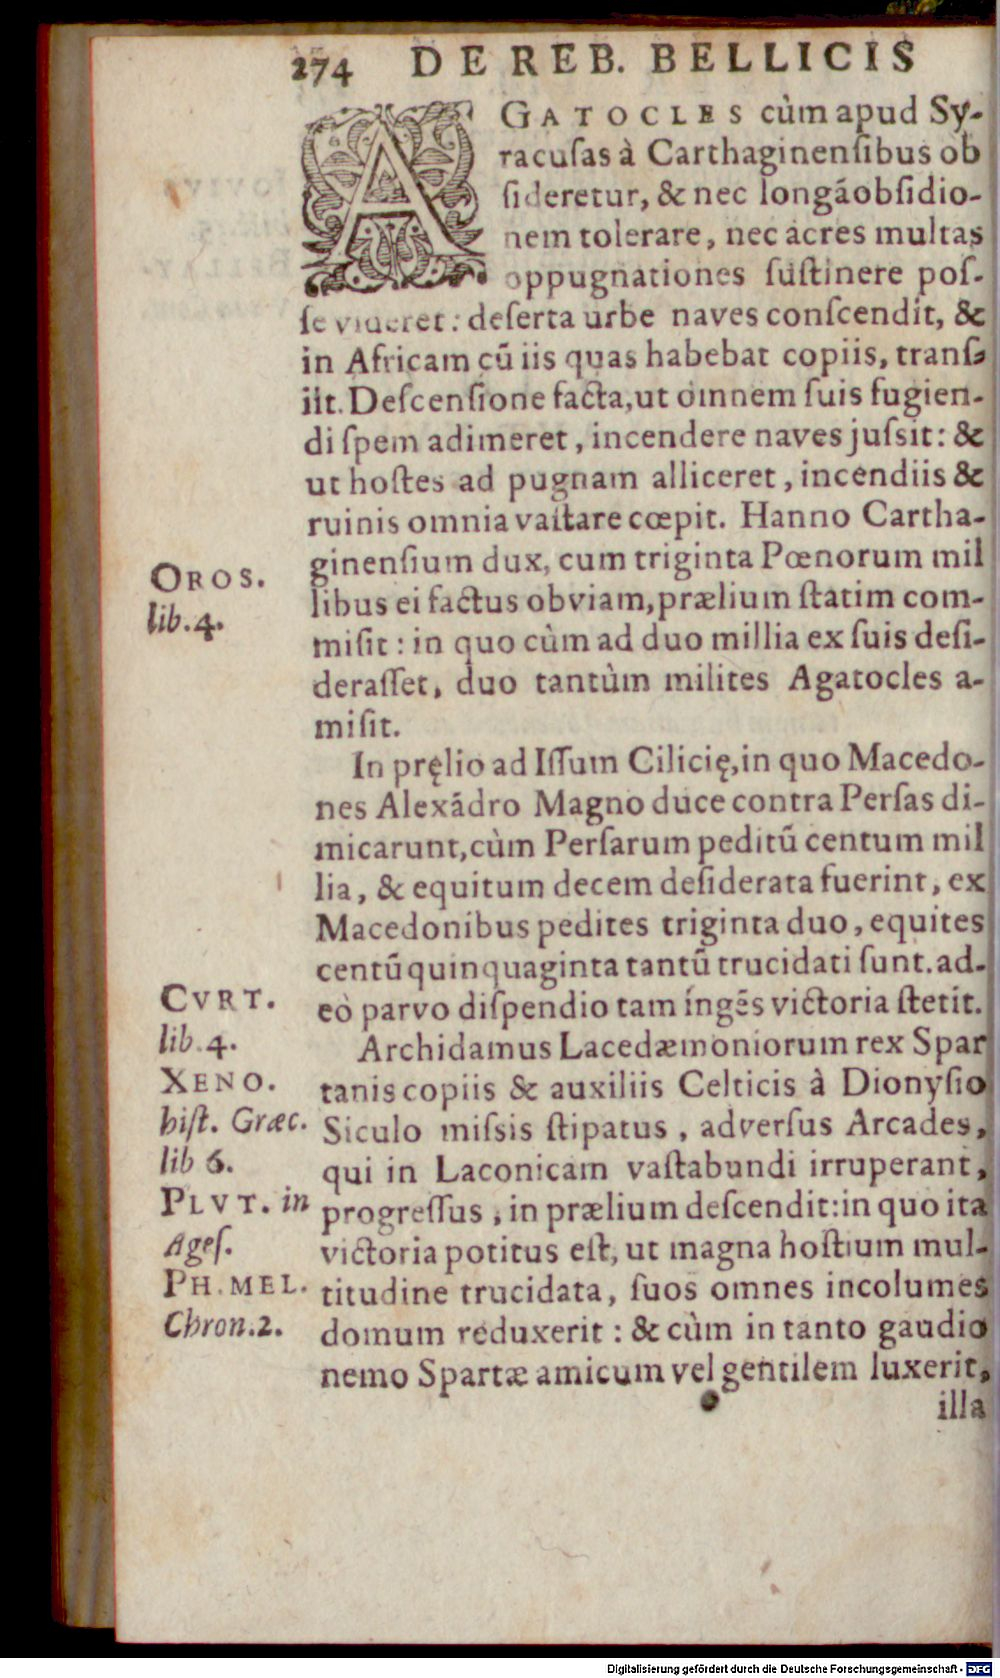 274 DE REB. BELLICIS
AGATOCLES cùm apud Sy-
racuſas à Carthaginenſibus ob
ſideretur, & nec longã obſidio-
nem tolerare, nec acres multas
oppugnationes ſuſtinere poſ-
ſe videret: deſerta urbe naves conſcendit, &
in Africam cũ iis quas habebat copiis, tranſ-
iit. Deſcenſione facta, ut omnem ſuis fugien-
di ſpem adimeret, incendere naves juſsit: &
ut hoſtes ad pugnam alliceret, incendiis &
ruinis omnia vaſtare cœpit. Hanno Cartha-
ginenſium dux, cum triginta Pœnorum mil
libus ei factus obviam, prælium ſtatim com-
miſit: in quo cùm ad duo millia ex ſuis deſi-
deraſſet, duo tantùm milites Agatocles a-
miſit.
OROS.
lib. 4.
In pręlio ad Iſſum Cilicię, in quo Macedo-
nes Alexãdro Magno duce contra Perſas di-
micarunt, cùm Perſarum peditũ centum mil
lia, & equitum decem deſiderata fuerint, ex
Macedonibus pedites triginta duo, equites
centũ quinquaginta tantũ trucidati ſunt. ad-
eò parvo diſpendio tam ingẽs victoria ſtetit.
CVRT.
lib. 4.
Archidamus Lacedæmoniorum rex Spar
tanis copiis & auxiliis Celticis à Dionyſio
Siculo miſsis ſtipatus, adverſus Arcades,
qui in Laconicam vaſtabundi irruperant,
progreſſus, in prælium deſcendit: in quo ita
victoria potitus eſt, ut magna hoſtium mul-
titudine trucidata, ſuos omnes incolumes
domum reduxerit: & cùm in tanto gaudio
nemo Spartæ amicum vel gentilem luxerit,
illa
XENO.
hiſt. Græc.
lib 6.
PLVT. in
Ageſ.
PH. MEL.
Chron. 2.
Digitalisierung gefördert durch die Deutsche Forschungsgemeinschaft - DFG